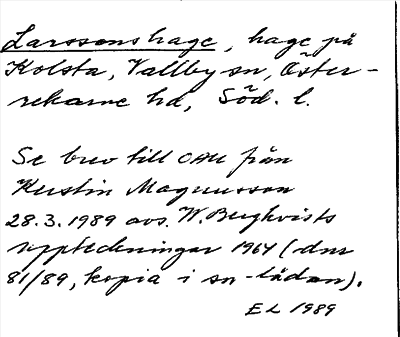 Larssons hage, hage på
Kolsta, Vallby sn, Öster-
rekarne hd, Söd. l.
Se brev till OAU från
Kerstin Magnusson
28.3.1989 avs. W. Bergkvists
uppteckningar 1964 (dnr
81/89, kopia i sn-lådan).
EL 1989